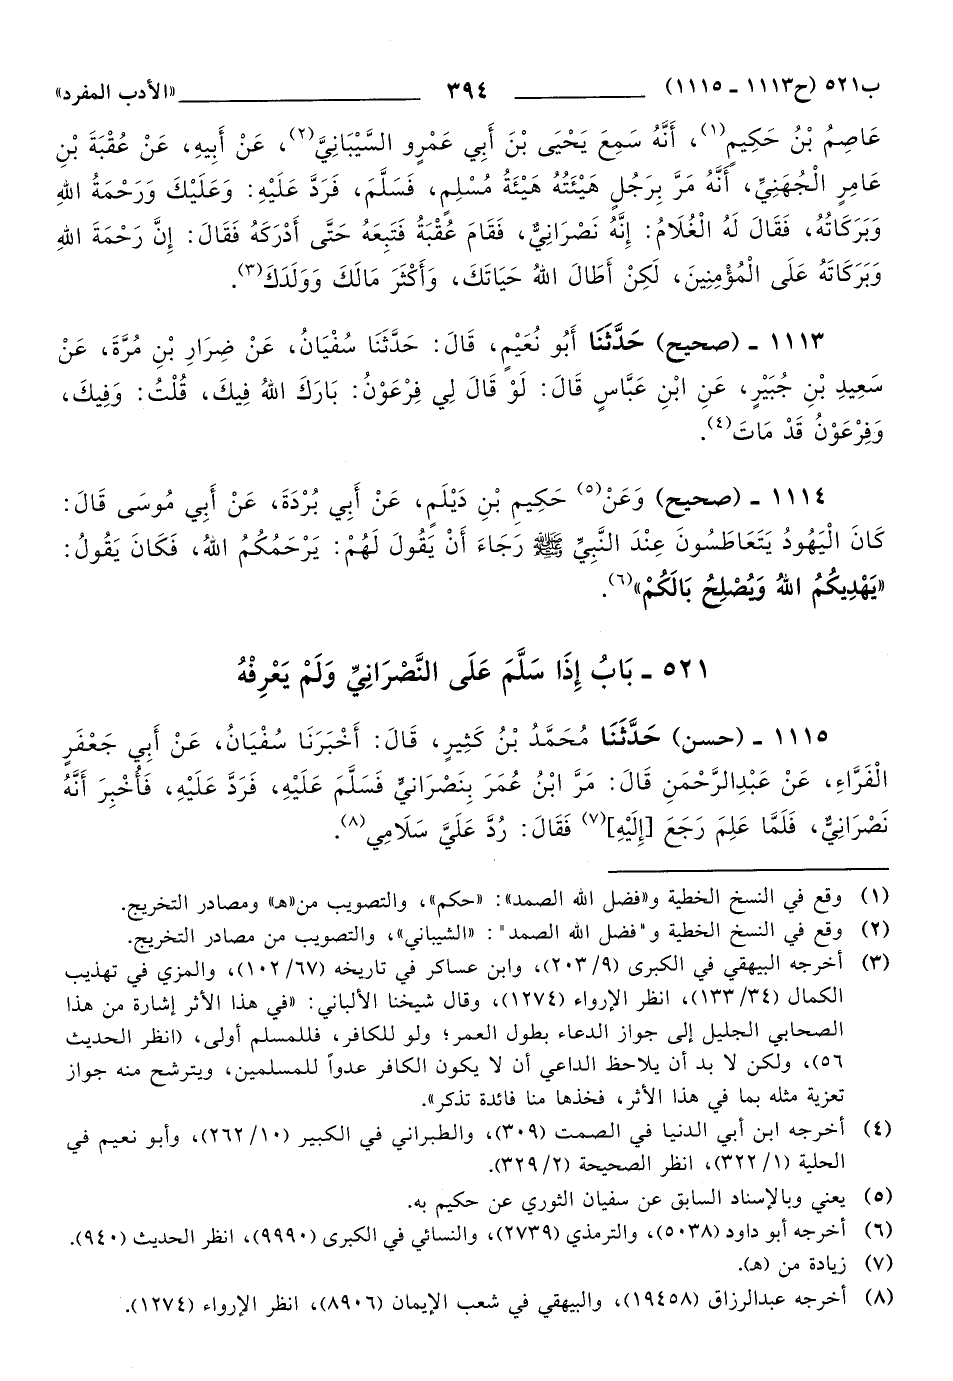 ب٥٢١ (ح١١١٣ ـ ١١١٥) ٣٩٤ «الأدب المفرد»
عَاصِمُ بْنُ حَكِيمٍ(١)، أَنَّهُ سَمِعَ يَحْيَى بْنَ أَبِي عَمْرٍو السَّيْبَانِيَّ(٢)، عَنْ أَبِيهِ، عَنْ عُقْبَةَ بْنِ
عَامِرٍ الْجُهَنِيِّ، أَنَّهُ مَرَّ بِرَجُلٍ هَيْئَتُهُ هَيْئَةُ مُسْلِمٍ، فَسَلَّمَ، فَرَدَّ عَلَيْهِ: وَعَلَيْكَ وَرَحْمَةُ اللهِ
وَبَرَكَاتُهُ، فَقَالَ لَهُ الْغُلَامُ: إِنَّهُ نَصْرَانِيٌّ، فَقَامَ عُقْبَةُ فَتَبِعَهُ حَتَّى أَدْرَكَهُ فَقَالَ: إِنَّ رَحْمَةَ اللهِ
وَبَرَكَاتَهُ عَلَى الْمُؤْمِنِينَ، لَكِنْ أَطَالَ اللهُ حَيَاتَكَ، وَأَكْثَرَ مَالَكَ وَوَلَدَكَ(٣).
١١١٣ ـ (صحيح) حَدَّثَنَا أَبُو نُعَيْمٍ، قَالَ: حَدَّثَنَا سُفْيَانُ، عَنْ ضِرَارِ بْنِ مُرَّةَ، عَنْ
سَعِيدِ بْنِ جُبَيْرٍ، عَنِ ابْنِ عَبَّاسٍ قَالَ: لَوْ قَالَ لِي فِرْعَوْنُ: بَارَكَ اللهُ فِيكَ، قُلْتُ: وَفِيكَ،
وَفِرْعَوْنُ قَدْ مَاتَ(٤).
١١١٤ ـ (صحيح) وَعَنْ(٥) حَكِيمِ بْنِ دَيْلَمٍ، عَنْ أَبِي بُرْدَةَ، عَنْ أَبِي مُوسَى قَالَ:
كَانَ الْيَهُودُ يَتَعَاطَسُونَ عِنْدَ النَّبِيِّ ﷺ رَجَاءَ أَنْ يَقُولَ لَهُمْ: يَرْحَمُكُمُ اللهُ، فَكَانَ يَقُولُ:
«يَهْدِيكُمُ اللهُ وَيُصْلِحُ بَالَكُمْ»(٦).
٥٢١ ـ بَابُ إِذَا سَلَّمَ عَلَى النَّصْرَانِيِّ وَلَمْ يَعْرِفْهُ
١١١٥ ـ (حسن) حَدَّثَنَا مُحَمَّدُ بْنُ كَثِيرٍ، قَالَ: أَخْبَرَنَا سُفْيَانُ، عَنْ أَبِي جَعْفَرٍ
الْفَرَّاءِ، عَنْ عَبْدِالرَّحْمَنِ قَالَ: مَرَّ ابْنُ عُمَرَ بِنَصْرَانِيٍّ فَسَلَّمَ عَلَيْهِ، فَرَدَّ عَلَيْهِ، فَأُخْبِرَ أَنَّهُ
نَصْرَانِيٌّ، فَلَمَّا عَلِمَ رَجَعَ [إِلَيْهِ](٧) فَقَالَ: رُدَّ عَلَيَّ سَلَامِي(٨).
(١) وقع في النسخ الخطية و«فضل الله الصمد»: «حكم»، والتصويب من«هـ» ومصادر التخريج.
(٢) وقع في النسخ الخطية و"فضل الله الصمد": «الشيباني»، والتصويب من مصادر التخريج.
(٣) أخرجه البيهقي في الكبرى (٢٠٣/٩)، وابن عساكر في تاريخه (١٠٢/٦٧)، والمزي في تهذيب
الكمال (١٣٣/٣٤)، انظر الإرواء (١٢٧٤)، وقال شيخنا الألباني: «في هذا الأثر إشارة من هذا
الصحابي الجليل إلى جواز الدعاء بطول العمر؛ ولو للكافر، فللمسلم أولى، (انظر الحديث
٥٦)، ولكن لا بد أن يلاحظ الداعي أن لا يكون الكافر عدواً للمسلمين، ويترشح منه جواز
تعزية مثله بما في هذا الأثر، فخذها منا فائدة تذكر».
(٤) أخرجه ابن أبي الدنيا في الصمت (٣٠٩)، والطبراني في الكبير (٢٦٢/١٠)، وأبو نعيم في
الحلية (٣٢٢/١)، انظر الصحيحة (٣٢٩/٢).
(٥) يعني وبالإسناد السابق عن سفيان الثوري عن حكيم به.
(٦) أخرجه أبو داود (٥٠٣٨)، والترمذي (٢٧٣٩)، والنسائي في الكبرى (٩٩٩٠)، انظر الحديث (٩٤٠).
(٧) زيادة من (هـ).
(٨) أخرجه عبدالرزاق (١٩٤٥٨)، والبيهقي في شعب الإيمان (٨٩٠٦)، انظر الإرواء (١٢٧٤).